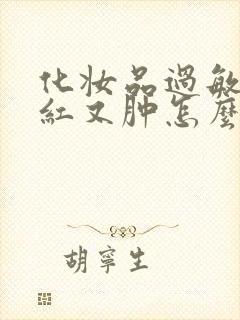 化妆品過敏
紅又肿怎麼
胡寧生